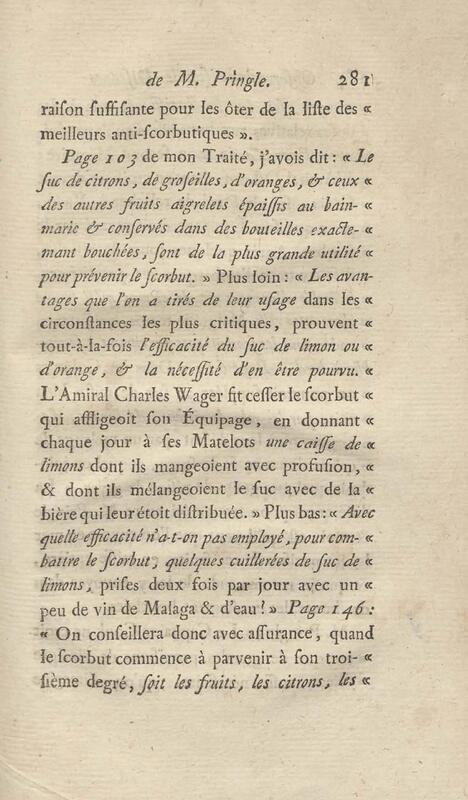 de M. Pringle. 281
raiſon ſuffiſante pour les ôter de la liſte des «
meilleurs anti-ſcorbutiques ».
Page 103 de mon Traité, j'avois dit : « Le
ſuc de citrons, de groſeilles, d'oranges, & ceux «
des autres fruits aigrelets épaiſſis au bain- «
marie & conſervés dans des bouteilles exacte- «
mant bouchées, ſont de la plus grande utilité «
pour prévenir le ſcorbut. » Plus loin : « Les avan-
tages que l'on a tirés de leur uſage dans les «
circonſtances les plus critiques, prouvent «
tout-à-la-fois l'efficacité du ſuc de limon ou «
d'orange, & la néceſſité d'en être pourvu. «
L'Amiral Charles Wager fit ceſſer le ſcorbut «
qui affligeoit ſon Équipage, en donnant «
chaque jour à ſes Matelots une caiſſe de «
limons dont ils mangeoient avec profuſion, «
& dont ils mélangeoient le ſuc avec de la «
bière qui leur étoit diſtribuée. » Plus bas : « Avec
quelle efficacité n'a-t-on pas employé, pour com- «
battre le ſcorbut, quelques cuillerées de ſuc de «
limons, priſes deux fois par jour avec un «
peu de vin de Malaga & d'eau ? » Page 146 :
« On conſeillera donc avec aſſurance, quand
le ſcorbut commence à parvenir à ſon troi- «
ſième degré, ſoit les fruits, les citrons, les «